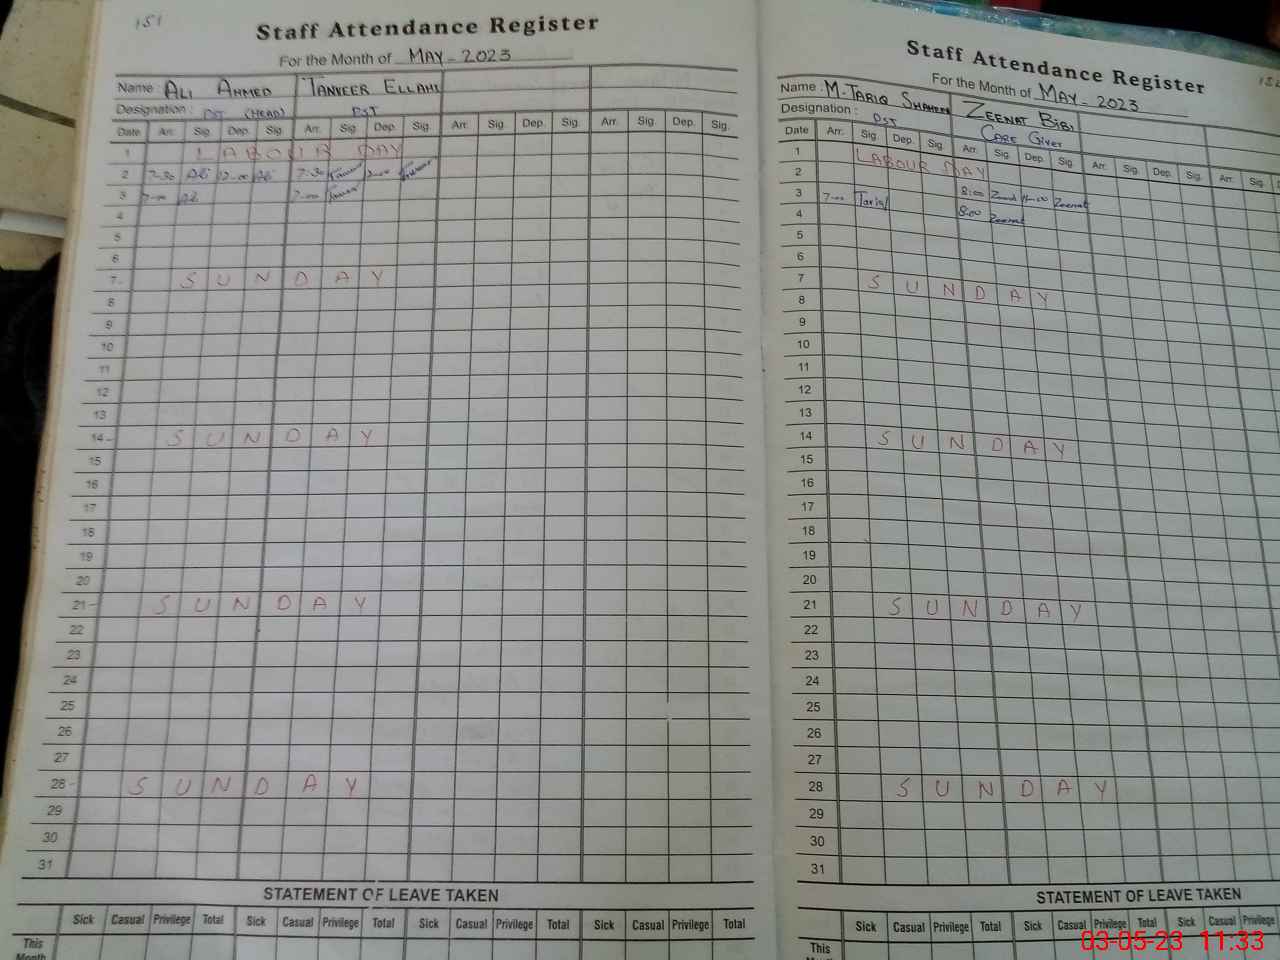 151
Staff Attendance Register
For the Month of MAY - 2023
Name : ALI AHMED TANVEER ELLAHI
Designation : PST (HEAD) PST
Date Arr. Sig. Dep. Sig. Arr. Sig. Dep. Sig. Arr. Sig. Dep. Sig. Arr. Sig. Dep. Sig.
1 LABOUR DAY
2 7-30 Ali 12-00 Ali 7-30
3 7-00 Ali 7-00
4
5
6
7 SUNDAY
8
9
10
11
12
13
14 SUNDAY
15
16
17
18
19
20
21 SUNDAY
22
23
24
25
26
27
28 SUNDAY
29
30
31
STATEMENT OF LEAVE TAKEN
Sick Casual Privilege Total Sick Casual Privilege Total Sick Casual Privilege Total Sick Casual Privilege Total
This
Month
Staff Attendance Register
For the Month of MAY - 2023
Name : M. TARIQ SHAHEEN ZEENAT BIBI
Designation : PST CARE Giver
Date Arr. Sig. Dep. Sig. Arr. Sig. Dep. Sig. Arr. Sig. Dep. Sig. Arr. Sig.
1 LABOUR DAY
2 8:00 Zeenat Zeenat
3 7-00 Tariq 8:00 Zeenat
4
5
6
7 SUNDAY
8
9
10
11
12
13
14 SUNDAY
15
16
17
18
19
20
21 SUNDAY
22
23
24
25
26
27
28 SUNDAY
29
30
31
STATEMENT OF LEAVE TAKEN
Sick Casual Privilege Total Sick Casual Privilege Total Sick Casual Privilege
This
Month
03-05-23 11:33